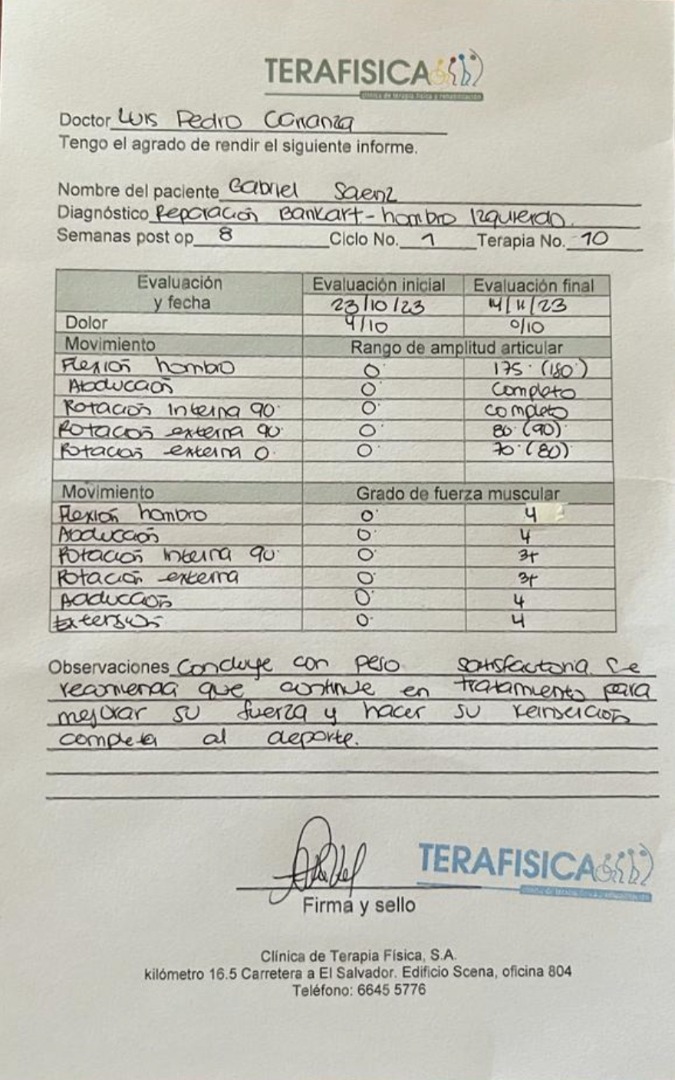 TERAFISICA
clínica de terapia física y rehabilitación
Doctor Luis Pedro Cananza
Tengo el agrado de rendir el siguiente informe.
Nombre del paciente Gabriel Saenz
Diagnóstico Reparación Bankart - hombro Izquierdo.
Semanas post op 8 Ciclo No. 1 Terapia No. 10
Evaluación y fecha Evaluación inicial Evaluación final
23/10/23 14/11/23
Dolor 4/10 0/10
Movimiento Rango de amplitud articular
Flexión hombro 0° 175° (180°)
Abducción 0° Completo
Rotación Interna 90° 0° completo
Rotación externa 90° 0° 80° (90)
Rotación externa 0° 0° 70° (80)
Movimiento Grado de fuerza muscular
Flexión hombro 0° 4
Abducción 0° 4
Rotación Interna 90° 0° 3+
Rotación externa 0° 3+
Aducción 0° 4
Extensión 0° 4
Observaciones Concluye con satisfactoria. Se
recomienda que continue en tratamiento para
mejorar su fuerza y hacer su reinserción
completa al deporte.
TERAFISICA
Firma y sello
Clínica de Terapia Física, S.A.
kilómetro 16.5 Carretera a El Salvador. Edificio Scena, oficina 804
Teléfono: 6645 5776